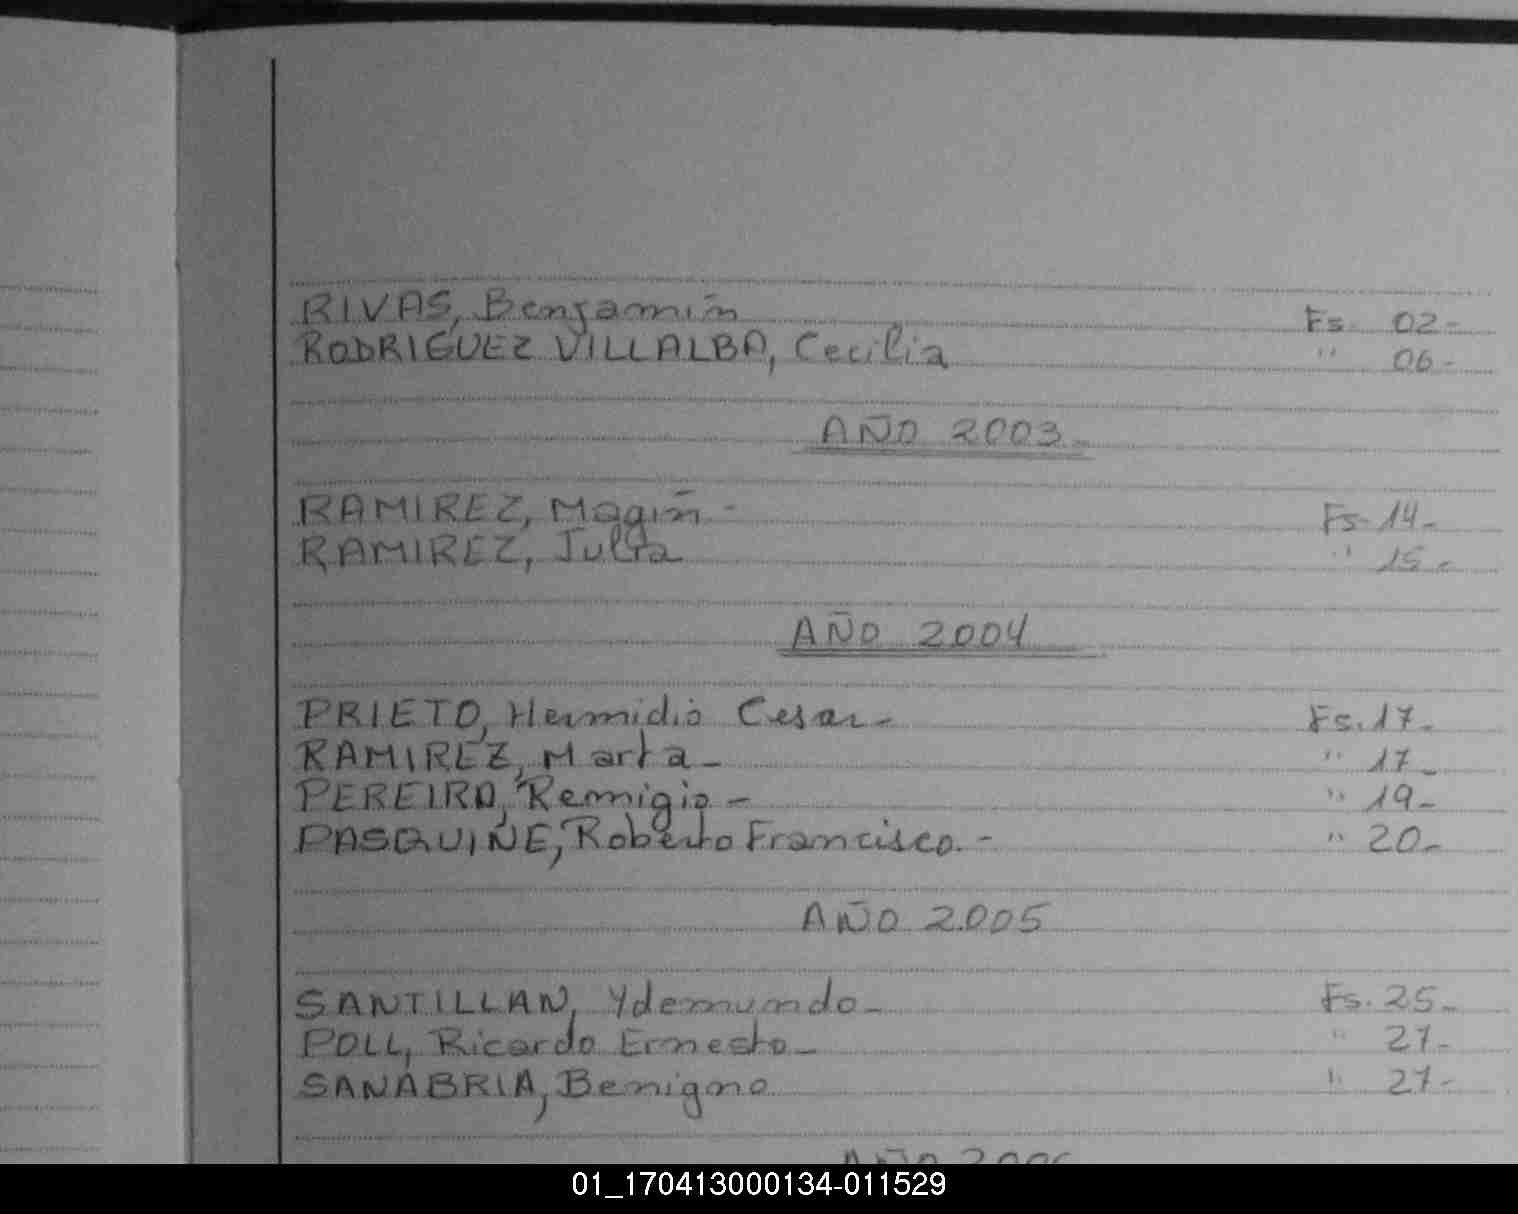 RIVAS, Benjamín Fs. 02-
RODRIGUEZ VILLALBA, Cecilia " 06-
AÑO 2003-
RAMIREZ, Magín - Fs. 14-
RAMIREZ, Julia " 15-
AÑO 2004
PRIETO, Hermidio Cesar- Fs. 17-
RAMIREZ, Marta- " 17-
PEREIRO, Remigio- " 19-
PASQUINE, Roberto Francisco.- " 20-
AÑO 2.005
SANTILLAN, Ydemundo- Fs. 25-
POLL, Ricardo Ernesto- " 27-
SANABRIA, Benigno " 27-
AÑO 2006
01_170413000134-011529